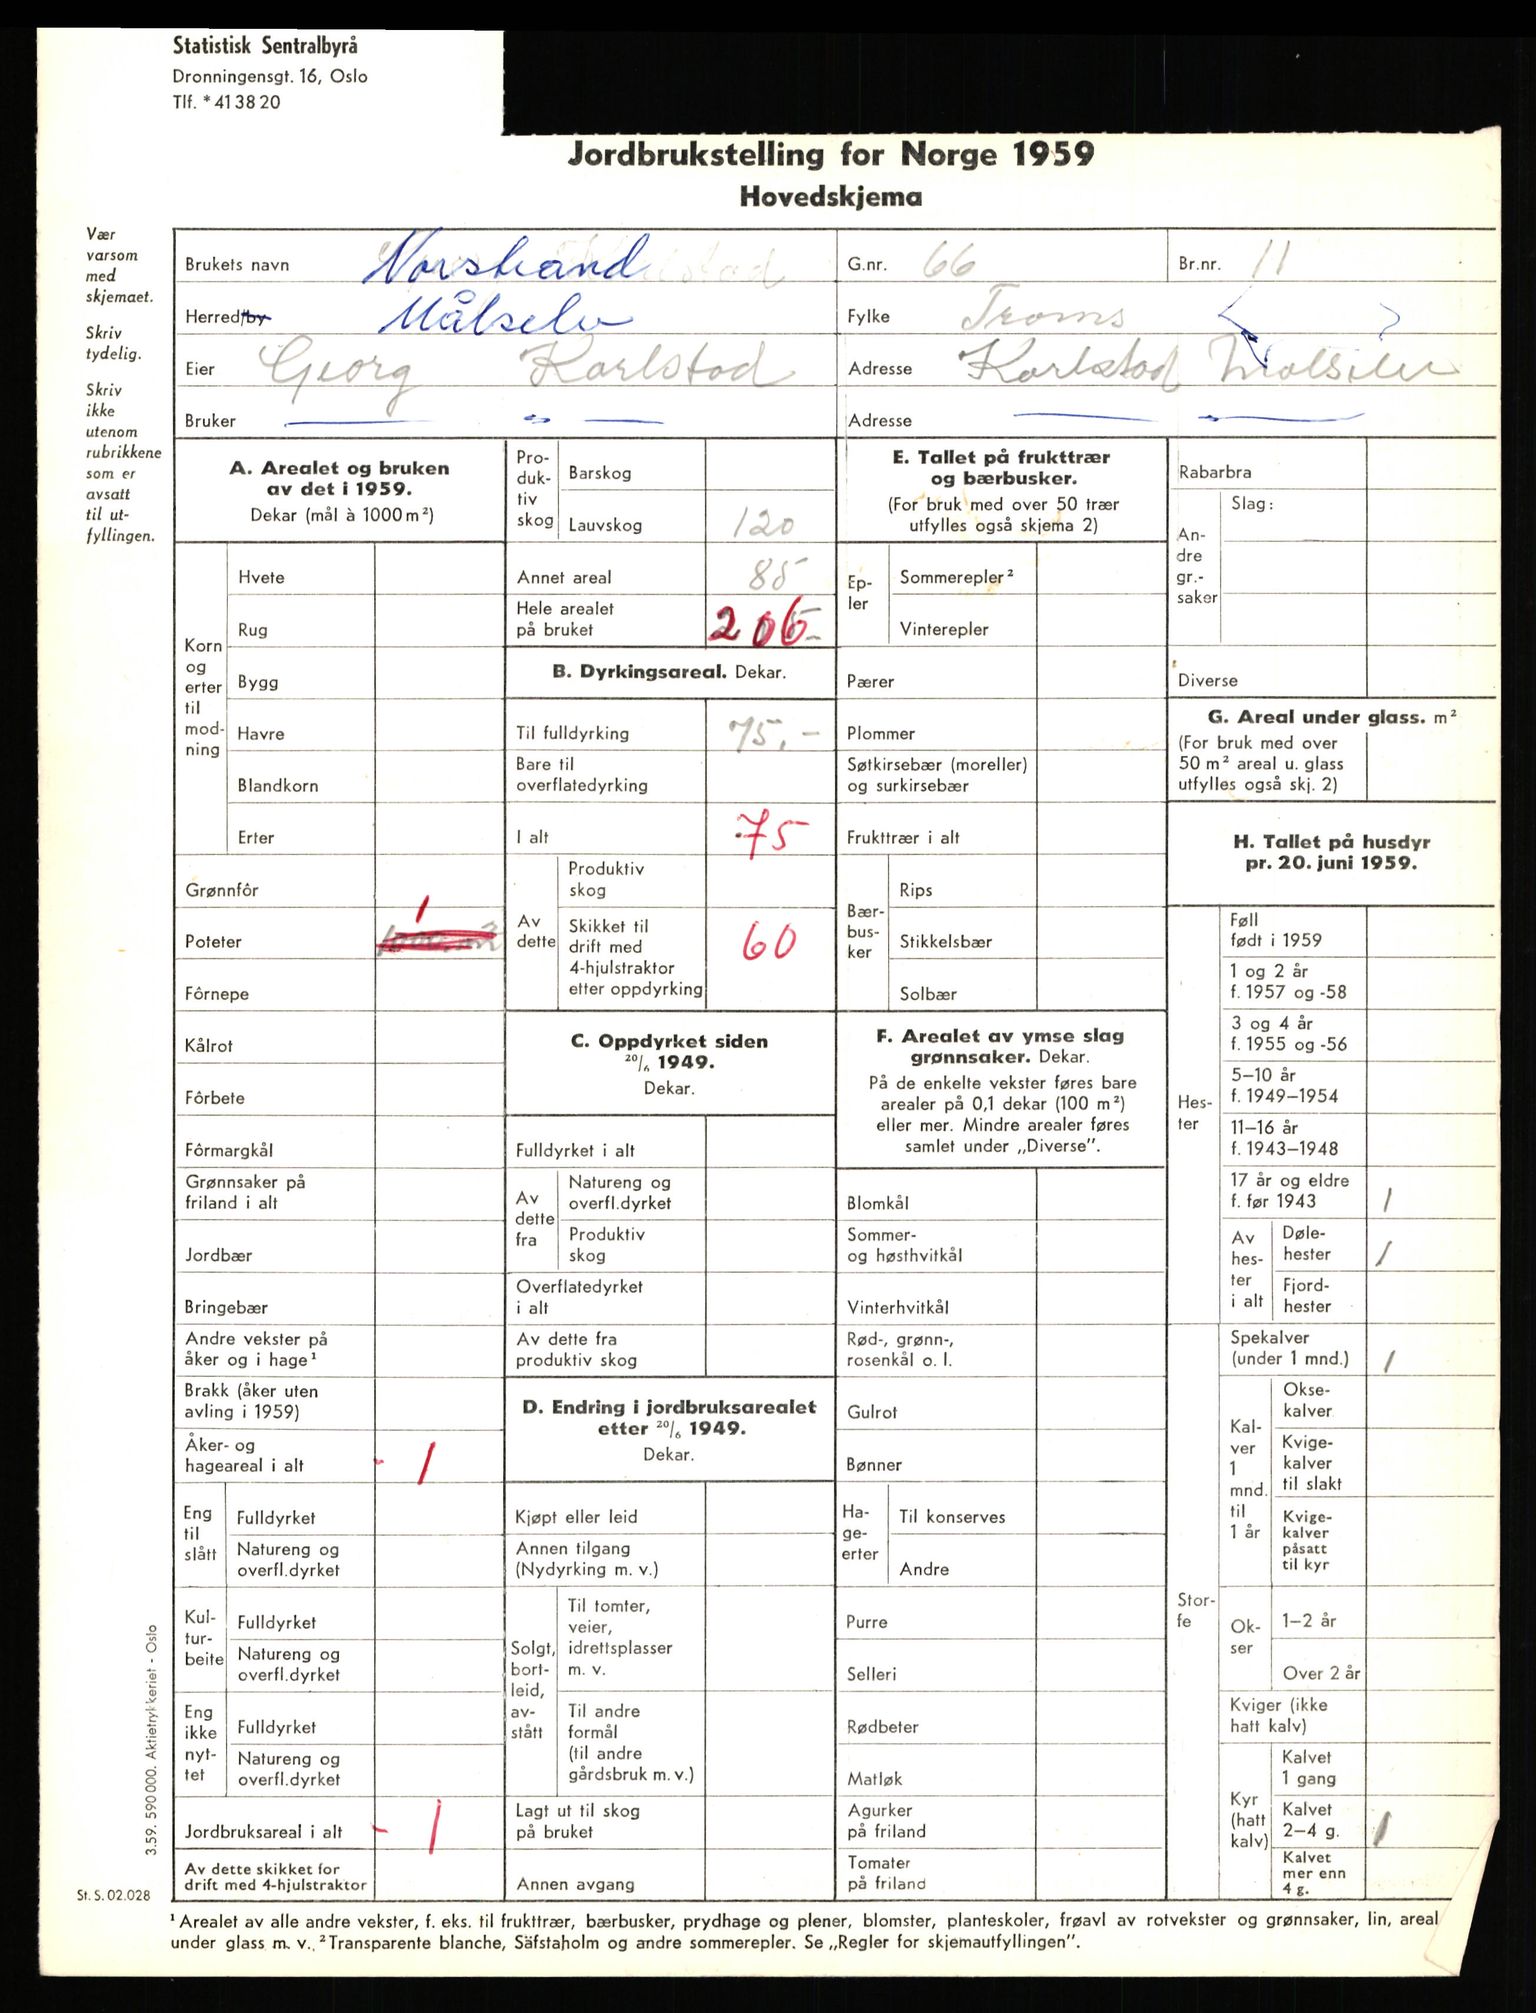 Statistisk Sentralbyrå
Dronningensgt. 16, Oslo
Tlf. * 41 38 20
Jordbrukstelling for Norge 1959
Hovedskjema
Vær
varsom
med
skjemaet.
Skriv
tydelig.
Skriv
ikke
utenom
rubrikkene
som er
avsatt
til ut-
fyllingen.
Brukets navn Norstrand
G.nr. 66
Br.nr. 11
Herred/by Målselv
Fylke Troms
Eier Georg Karlstad
Adresse Karlstad Målselv
Bruker — " —
Adresse — " —
A. Arealet og bruken
av det i 1959.
Dekar (mål à 1000 m²)
Korn
og
erter
til
mod-
ning
Hvete
Rug
Bygg
Havre
Blandkorn
Erter
Grønnfôr
Poteter 1
Fôrnepe
Kålrot
Fôrbete
Fôrmargkål
Grønnsaker på
friland i alt
Jordbær
Bringebær
Andre vekster på
åker og i hage¹
Brakk (åker uten
avling i 1959)
Åker- og
hageareal i alt - 1
Eng
til
slått
Fulldyrket
Natureng og
overfl.dyrket
Kul-
tur-
beite
Fulldyrket
Natureng og
overfl.dyrket
Eng
ikke
nyt-
tet
Fulldyrket
Natureng og
overfl.dyrket
Jordbruksareal i alt - 1
Av dette skikket for
drift med 4-hjulstraktor
Pro-
duk-
tiv
skog
Barskog
Lauvskog 120
Annet areal 85
Hele arealet
på bruket 206
B. Dyrkingsareal. Dekar.
Til fulldyrking 75.-
Bare til
overflatedyrking
I alt 75
Av
dette
Produktiv
skog
Skikket til
drift med
4-hjulstraktor
etter oppdyrking 60
C. Oppdyrket siden
20/6 1949.
Dekar.
Fulldyrket i alt
Av
dette
fra
Natureng og
overfl.dyrket
Produktiv
skog
Overflatedyrket
i alt
Av dette fra
produktiv skog
D. Endring i jordbruksarealet
etter 20/6 1949.
Dekar.
Kjøpt eller leid
Annen tilgang
(Nydyrking m. v.)
Solgt,
bort-
leid,
av-
stått
Til tomter,
veier,
idrettsplasser
m. v.
Til andre
formål
(til andre
gårdsbruk m. v.)
Lagt ut til skog
på bruket
Annen avgang
E. Tallet på frukttrær
og bærbusker.
(For bruk med over 50 trær
utfylles også skjema 2)
Ep-
ler
Sommerepler²
Vinterepler
Pærer
Plommer
Søtkirsebær (moreller)
og surkirsebær
Frukttrær i alt
Bær-
bus-
ker
Rips
Stikkelsbær
Solbær
F. Arealet av ymse slag
grønnsaker. Dekar.
På de enkelte vekster føres bare
arealer på 0,1 dekar (100 m²)
eller mer. Mindre arealer føres
samlet under „Diverse”.
Blomkål
Sommer-
og høsthvitkål
Vinterhvitkål
Rød-, grønn-,
rosenkål o. l.
Gulrot
Bønner
Ha-
ge-
erter
Til konserves
Andre
Purre
Selleri
Rødbeter
Matløk
Agurker
på friland
Tomater
på friland
Rabarbra
An-
dre
gr.-
saker
Slag:
Diverse
G. Areal under glass. m²
(For bruk med over
50 m² areal u. glass
utfylles også skj. 2)
H. Tallet på husdyr
pr. 20. juni 1959.
Hes-
ter
Føll
født i 1959
1 og 2 år
f. 1957 og -58
3 og 4 år
f. 1955 og -56
5–10 år
f. 1949–1954
11–16 år
f. 1943–1948
17 år og eldre
f. før 1943 1
Av
hes-
ter
i alt
Døle-
hester 1
Fjord-
hester
Stor-
fe
Spekalver
(under 1 mnd.) 1
Kal-
ver
1
mnd.
til
1 år
Okse-
kalver
Kvige-
kalver
til slakt
Kvige-
kalver
påsatt
til kyr
Ok-
ser
1–2 år
Over 2 år
Kviger (ikke
hatt kalv)
Kyr
(hatt
kalv)
Kalvet
1 gang
Kalvet
2–4 g. 1
Kalvet
mer enn
4 g.
3.59. 590 000. Aktietrykkeriet - Oslo
St. S. 02.028
¹ Arealet av alle andre vekster, f. eks. til frukttrær, bærbusker, prydhage og plener, blomster, planteskoler, frøavl av rotvekster og grønnsaker, lin, areal
under glass m. v.. ² Transparente blanche, Säfstaholm og andre sommerepler. Se „Regler for skjemautfyllingen”.